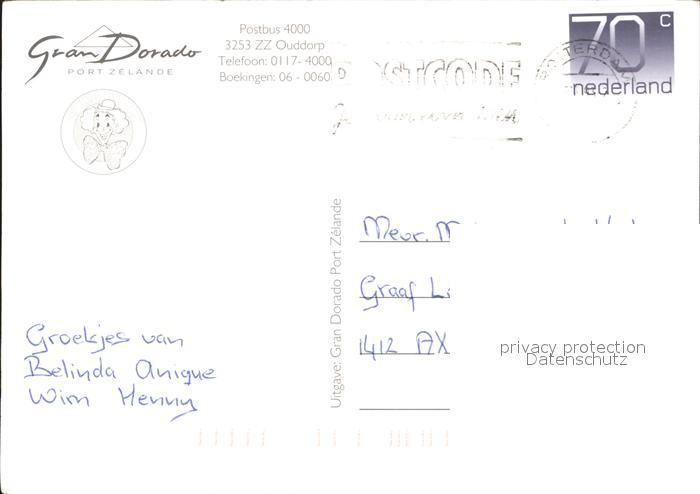 Gran Dorado
PORT ZÉLANDE
Postbus 4000
3253 ZZ Ouddorp
Telefoon: 0117- 4000
Boekingen: 06 - 0060
POSTCODE
70 c
nederland
ROTTERDAM
Uitgave: Gran Dorado Port Zélande
Mevr. M
Graaf L
1412 AX
privacy protection
Datenschutz
Groetjes van
Belinda Anique
Wim Henny